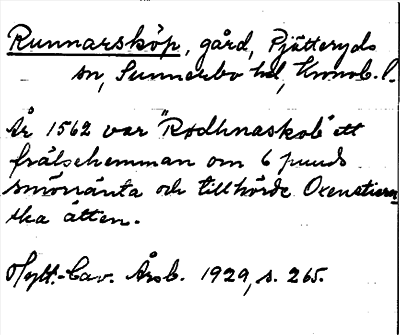 Runnarsköp, gård, Pjätteryds
sn, Sunnerbo hd, Kronob. l.
År 1562 var "Rodhnaskob" ett
frälsehemman om 6 punds
smörränta och tillhörde Oxenstierns-
ska ätten.
Hylt.-Cav. Årsb. 1929, s. 265.